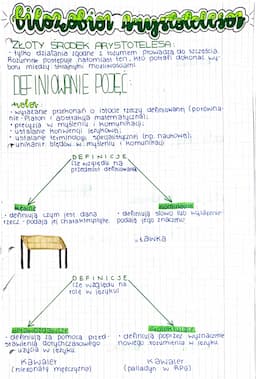 filozofia arystotelesa
ZŁOTY ŚRODEK ARYSTOTELESA:
• tylko działanie zgodne z rozumem prowadzą do szczęścia.
Rozumnie postępuje natomiast ten, kto potrafi dokonać wy-
boru między skrajnymi możliwościami.
DEFINIOWANIE POJĘĆ:
• wyrażanie przekonań o istocie rzeczy definiowanej (porówna-
nie - Platon i abstrakcja matematyczna);
• precyzja w myśleniu i komunikacji;
• ustalanie konwencji językowej;
• ustalanie terminologii specjalistycznej (np. naukowej);
• unikanie błędów w myśleniu i komunikacji
DEFINICJE
(ze względu na
przedmiot definiowania)
realne
nominalne
• definiują czym jest dana
rzecz - podają jej charakterystykę.
• definiują słowo lub wyrażenie-
podają jego znaczenie
ławka
DEFINICJE
(ze względu na
rolę w języku)
sprawozdawcze
projektujące
• definiują za pomocą przed-
stawienia dotychczasowego
użycia w języku.
• definiują poprzez wyznaczenie
nowego rozumienia w języku
Kawaler
(nieżonaty mężczyzna)
Kawaler
(palladyn w RPG)